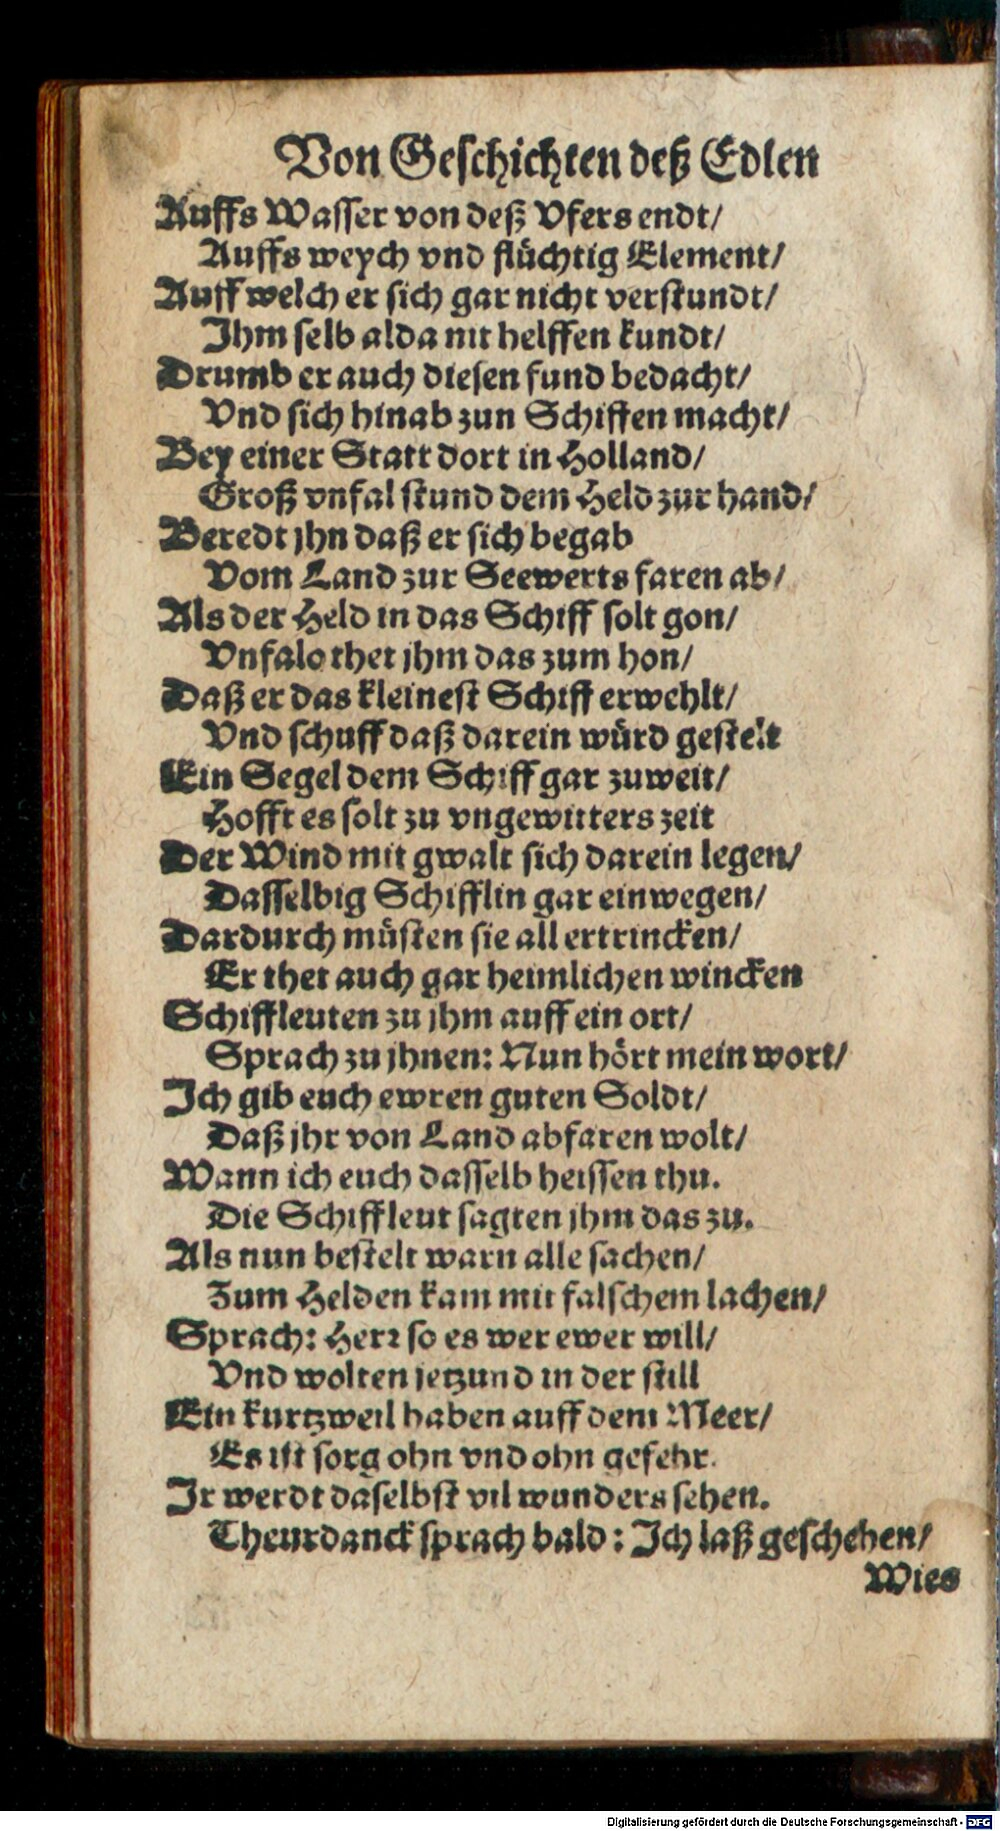 Von Geschichten deß Edlen
Auffs Wasser von deß Vfers endt/
Auffs weych vnd flüchtig Element/
Auff welch er sich gar nicht verstundt/
Ihm selb alda nit helffen kundt/
Drumb er auch diesen fund bedacht/
Vnd sich hinab zun Schiffen macht/
Bey einer Statt dort in Holland/
Groß vnfal stund dem Held zur hand/
Beredt jhn daß er sich begab
Vom Land zur Seewerts faren ab/
Als der Held in das Schiff solt gon/
Vnfalo thet jhm das zum hon/
Daß er das kleinest Schiff erwehlt/
Vnd schuff daß darein würd gestelt
Ein Segel dem Schiff gar zuweit/
Hofft es solt zu vngewitters zeit
Der Wind mit gwalt sich darein legen/
Dasselbig Schifflin gar einwegen/
Dardurch müsten sie all ertrincken/
Er thet auch gar heimlichen wincken
Schiffleuten zu jhm auff ein ort/
Sprach zu jhnen: Nun hört mein wort/
Ich gib euch ewren guten Soldt/
Daß jhr von Land abfaren wolt/
Wann ich euch dasselb heissen thu.
Die Schiffleut sagten jhm das zu.
Als nun bestelt warn alle sachen/
Zum Helden kam mit falschem lachen/
Sprach: Herr so es wer ewer will/
Vnd wolten jetzund in der still
Ein kurtzweil haben auff dem Meer/
Es ist sorg ohn vnd ohn gefehr.
Ir werdt daselbst vil wunders sehen.
Theurdanck sprach bald: Ich laß geschehen/
Wies
Digitalisierung gefördert durch die Deutsche Forschungsgemeinschaft - DFG